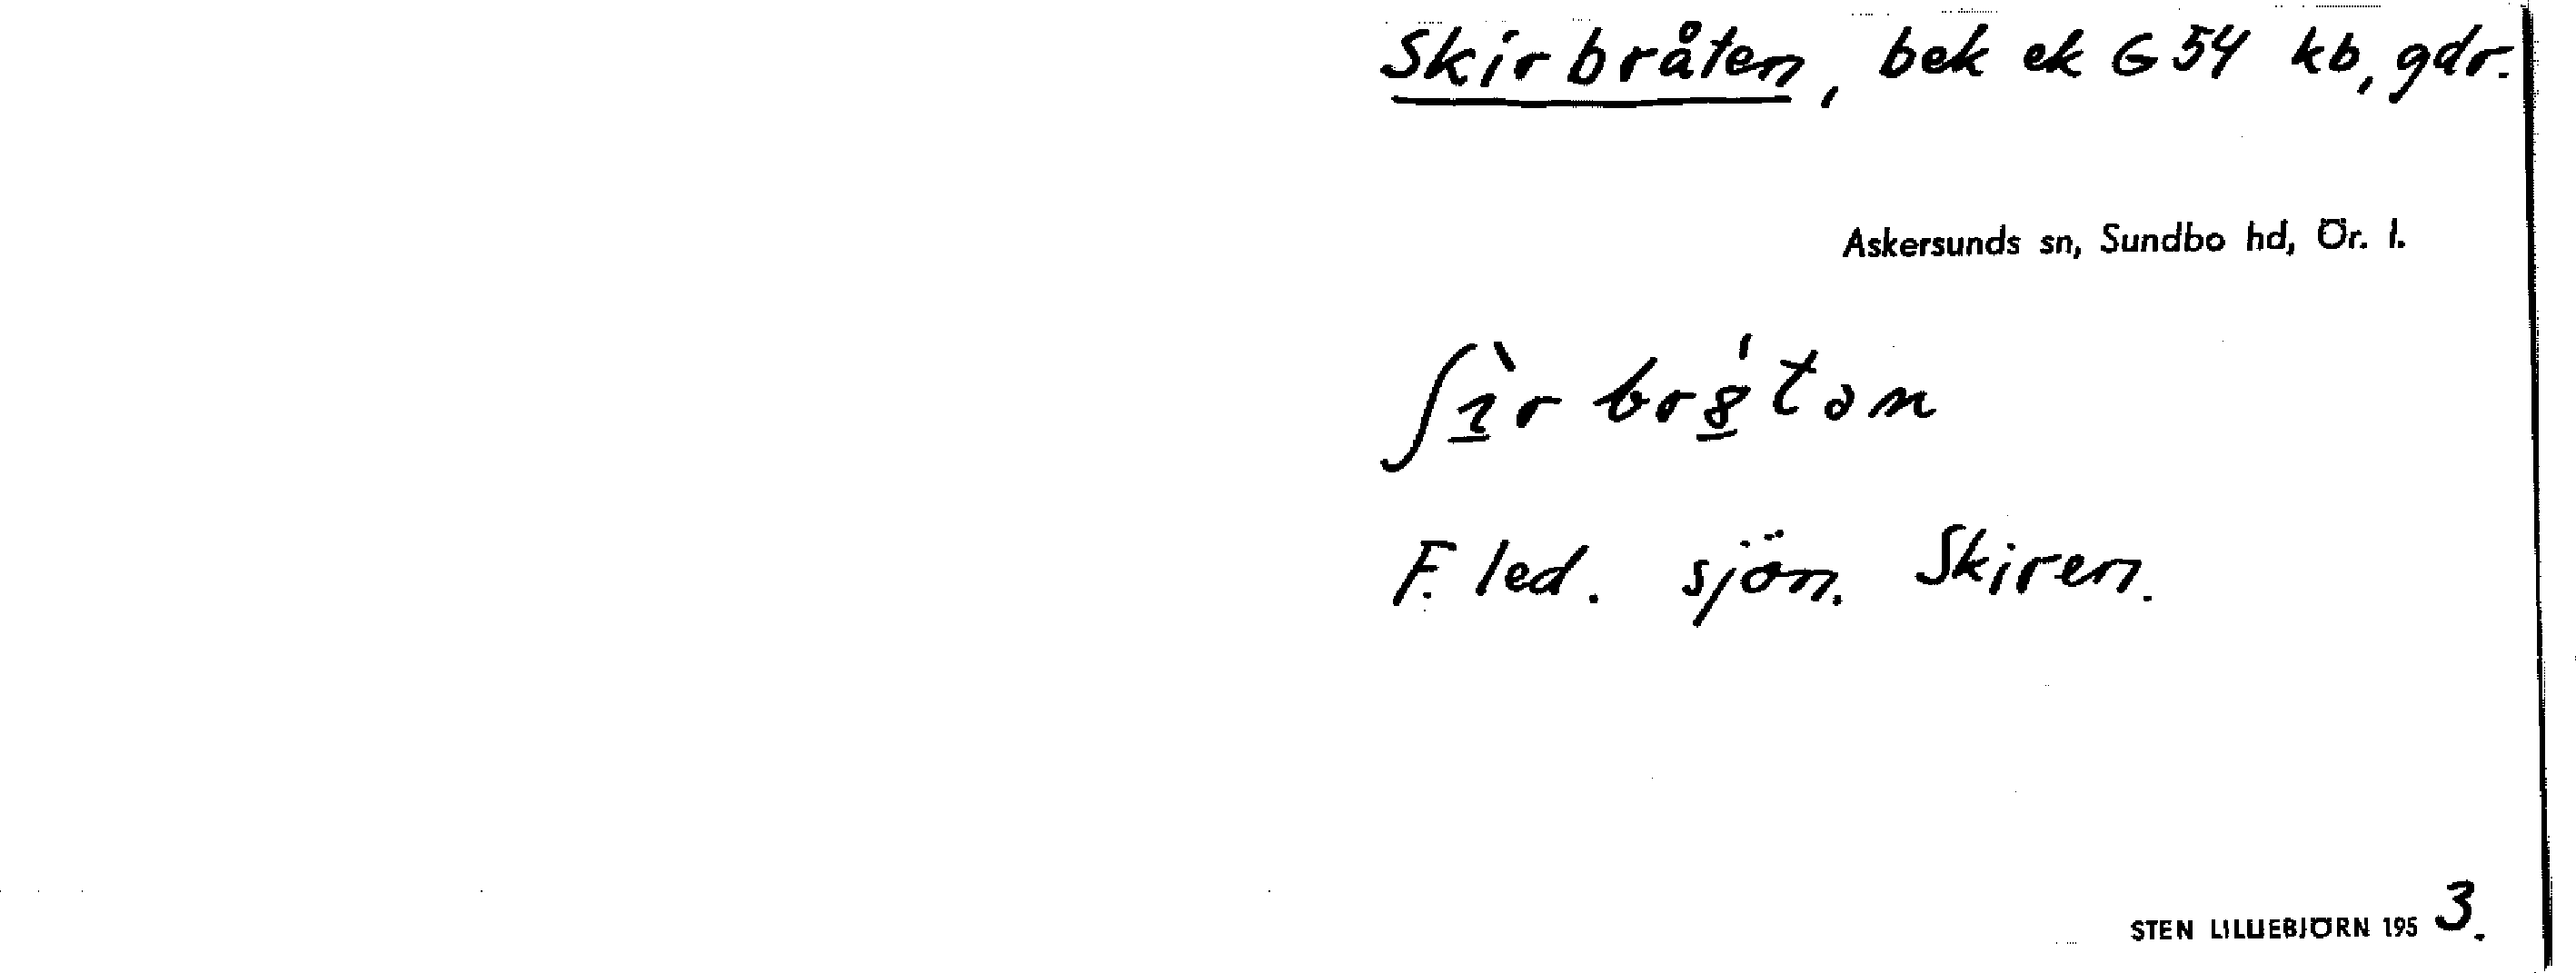 Skirbråten, bek ek G 54 kb, gdr.
Askersunds sn, Sundbo hd, Ör. l.
ʃɩ̠̀r brȣ̠́tən
F. led. sjön. Skiren.
STEN LILLIEBJÖRN 1953.